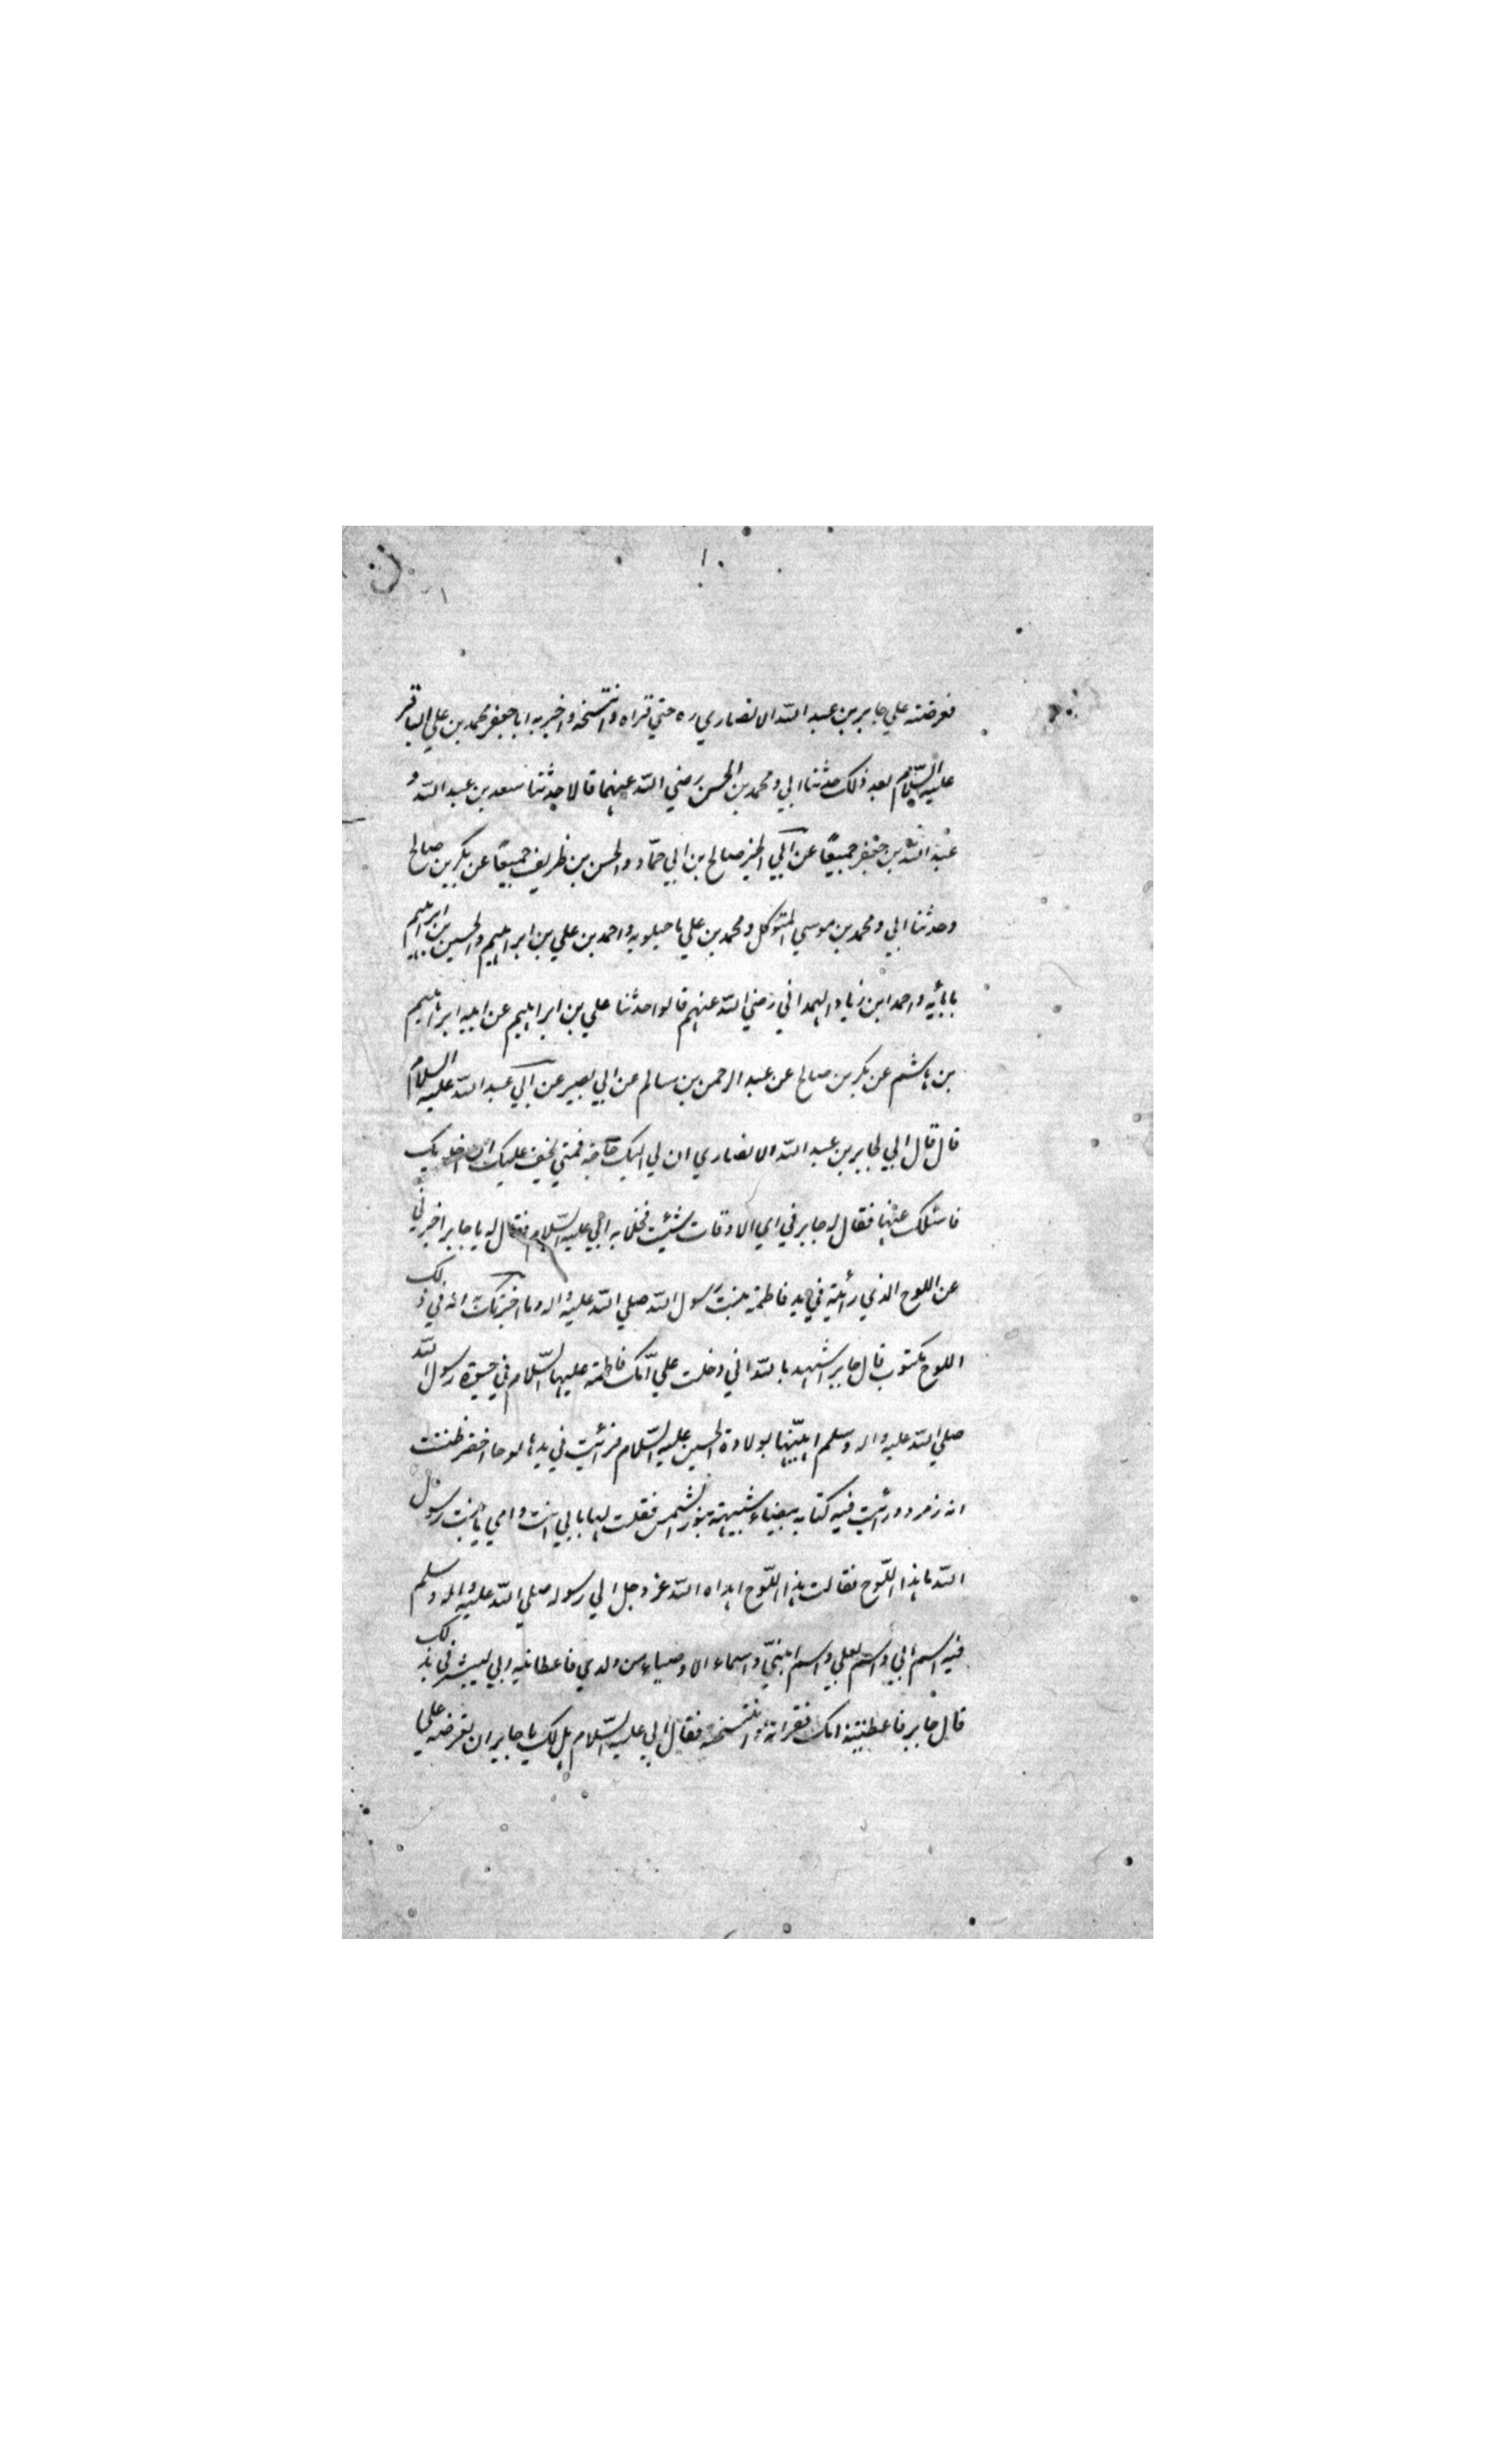 فعرضته علي جابر بن عبد الله الانصاري ره حتي قراه وانتسخه واخبر به ابا جعفر محمد بن علي الباقر
عليه السّلام بعد ذلك حدثنا ابي ومحمد بن الحسن رضي الله عنهما قالا حدثنا سعد بن عبد الله و
عبد الله بن جعفر جميعًا عن ابي الخير صالح بن ابي حمّاد والحسن بن ظريف جميعًا عن بكر بن صالح
وحدثنا ابي ومحمد بن موسي المتوكل ومحمد بن علي ماجيلويه واحمد بن علي بن ابراهيم والحسين بن ابراهيم
بابأيه واحمد ابن زياد الهمداني رضي الله عنهم قالوا حدثنا علي بن ابراهيم عن ابيه ابراهيم
بن هاشم عن بكر بن صالح عن عبد الرحمن بن سالم عن ابي بصير عن ابي عبد الله عليه السلام
قال قال ابي لجابر بن عبد الله الانصاري ان لي اليك حاجة فمتي يخف عليك ان اخلو بك
فاسئلك عنها فقال له جابر في اي الاوقات شئت فخلي به ابي عليه السّلام فقال له يا جابر اخبرني
عن اللوح الذي رأيته في يد فاطمة بنت رسول الله صلي الله عليه واله وما اخبرتك انه في ذلك
اللوح مكتوب قال جابر اشهد بالله اني دخلت علي امّك فاطمة عليها السّلام في حيوة رسول الله
صلي الله عليه واله وسلم اهنّيها بولادة الحسين عليه السّلام فرأيت في يدها لوحا اخضر ظننت
انه زمرد ورأيت فيه كتابه بيضاء شبيهة بنور الشمس فقلت لها بابي انت وامي يا بنت رسول
الله ما هذا اللّوح فقالت هذا اللّوح اهداه الله عز وجل الي رسوله صلي الله عليه واله وسلم
فيه اسم ابي واسم بعلي واسم ابنيّ واسماء الاوصياء من ولدي فاعطانيه ابي ليبشرني بذلك
قال جابر فاعطتنيه امك فقراته وانتسخته فقال ابي عليه السّلام هل لك يا جابر ان تعرضه علي